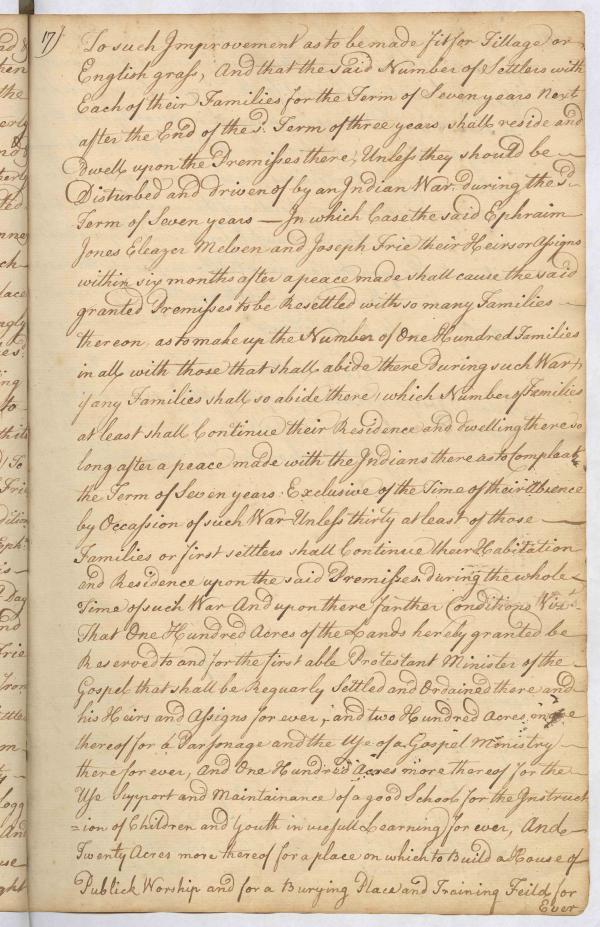 17)
To such Improvement as to be made fit for Tillage or
English grass, And that the said Number of Settlers with
Each of their Families for the Term of Seven years Next
after the End of the sd. Term of three years shall reside and
Dwell upon the Premisses there, Unless they should be
Disturbed and driven of by an Indian War, during the sd
Term of Seven years — In which Case the said Ephraim
Jones Eleazer Melven and Joseph Frie their Heirs or Assigns
within six months after a peace made shall cause the said
granted Premisses to be Resettled with so many Families
thereon as to make up the Number of One Hundred Families
in all with those that shall abide there during such War
if any Families shall so abide there, which Number of Families
at least shall Continue their Residence and dwelling there so
long after a peace made with the Indians there as to Compleat
the Term of Seven years Exclusive of the Time of their Absence
by Occassion of such War Unless thirty at least of those
Families or first settlers shall Continue their Habitation
and Residence upon the said Premisses during the whole
Time of such War And upon there farther Conditions Vizt.
That One Hundred Acres of the Lands hereby granted be
Reserved to and for the first able Protestant Minister of the
Gospel that shall be Reguarly Settled and Ordained there and
his Heirs and Assigns for ever, and two Hundred Acres more
thereof for a Parsonage and the Use of a Gospel Ministry
there for ever, And One Hundrid Acres more thereof for the
Use Support and Maintainance of a good School for the Instruct
=ion of Children and Youth in usefull Learning for ever, And
Twenty Acres more thereof for a place on which to Build a House of
Publick Worship and for a Burying Place and Training Feild for
Ever